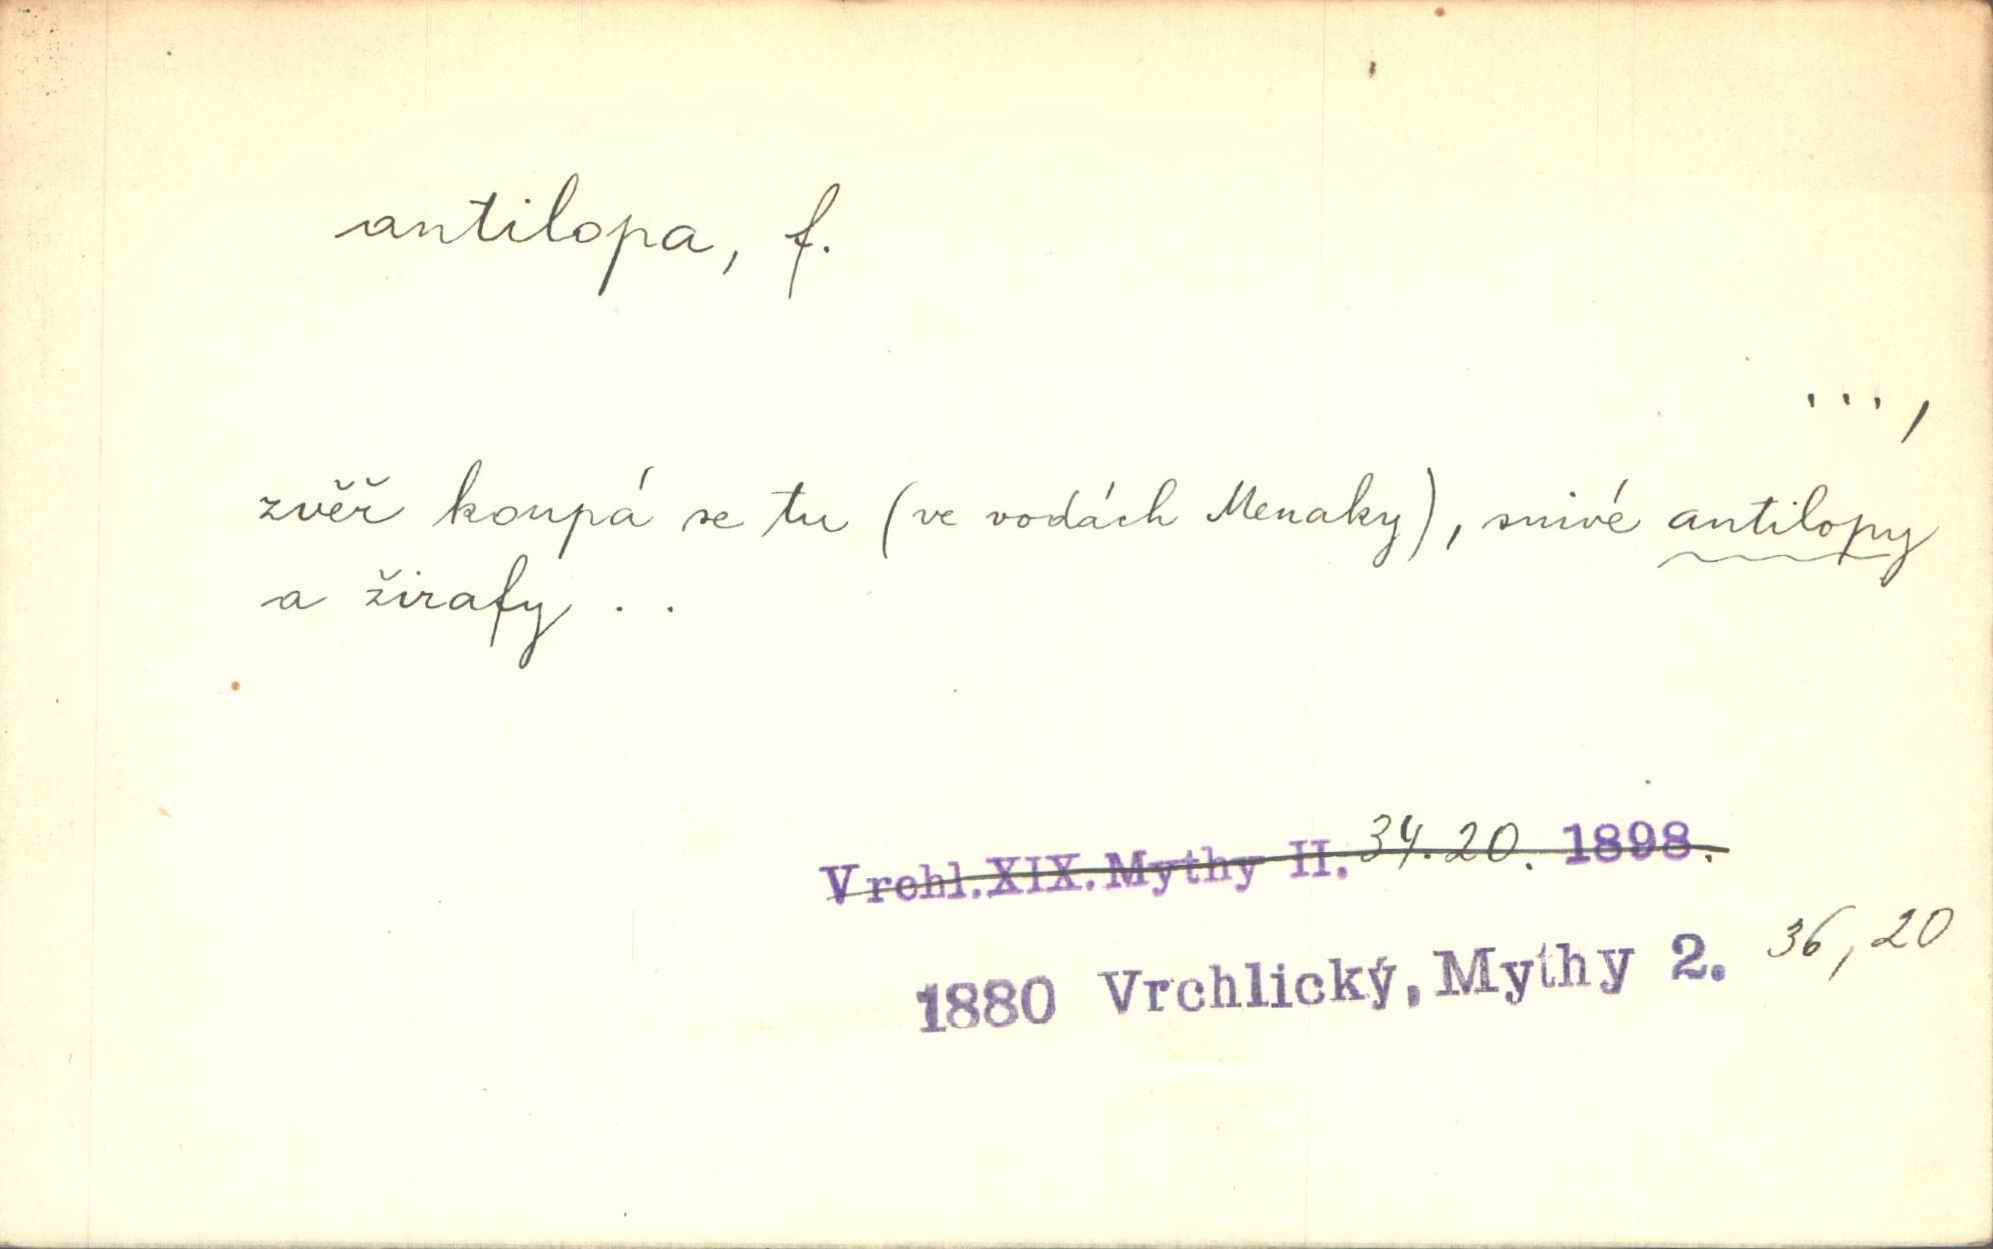 antilopa, f.
...,
zvěř koupá se tu (ve vodách Menaky), snivé antilopy
a žirafy . .
Vrchl.XIX.Mythy II. 34.20. 1898.
1880 Vrchlický, Mythy 2. 36,20